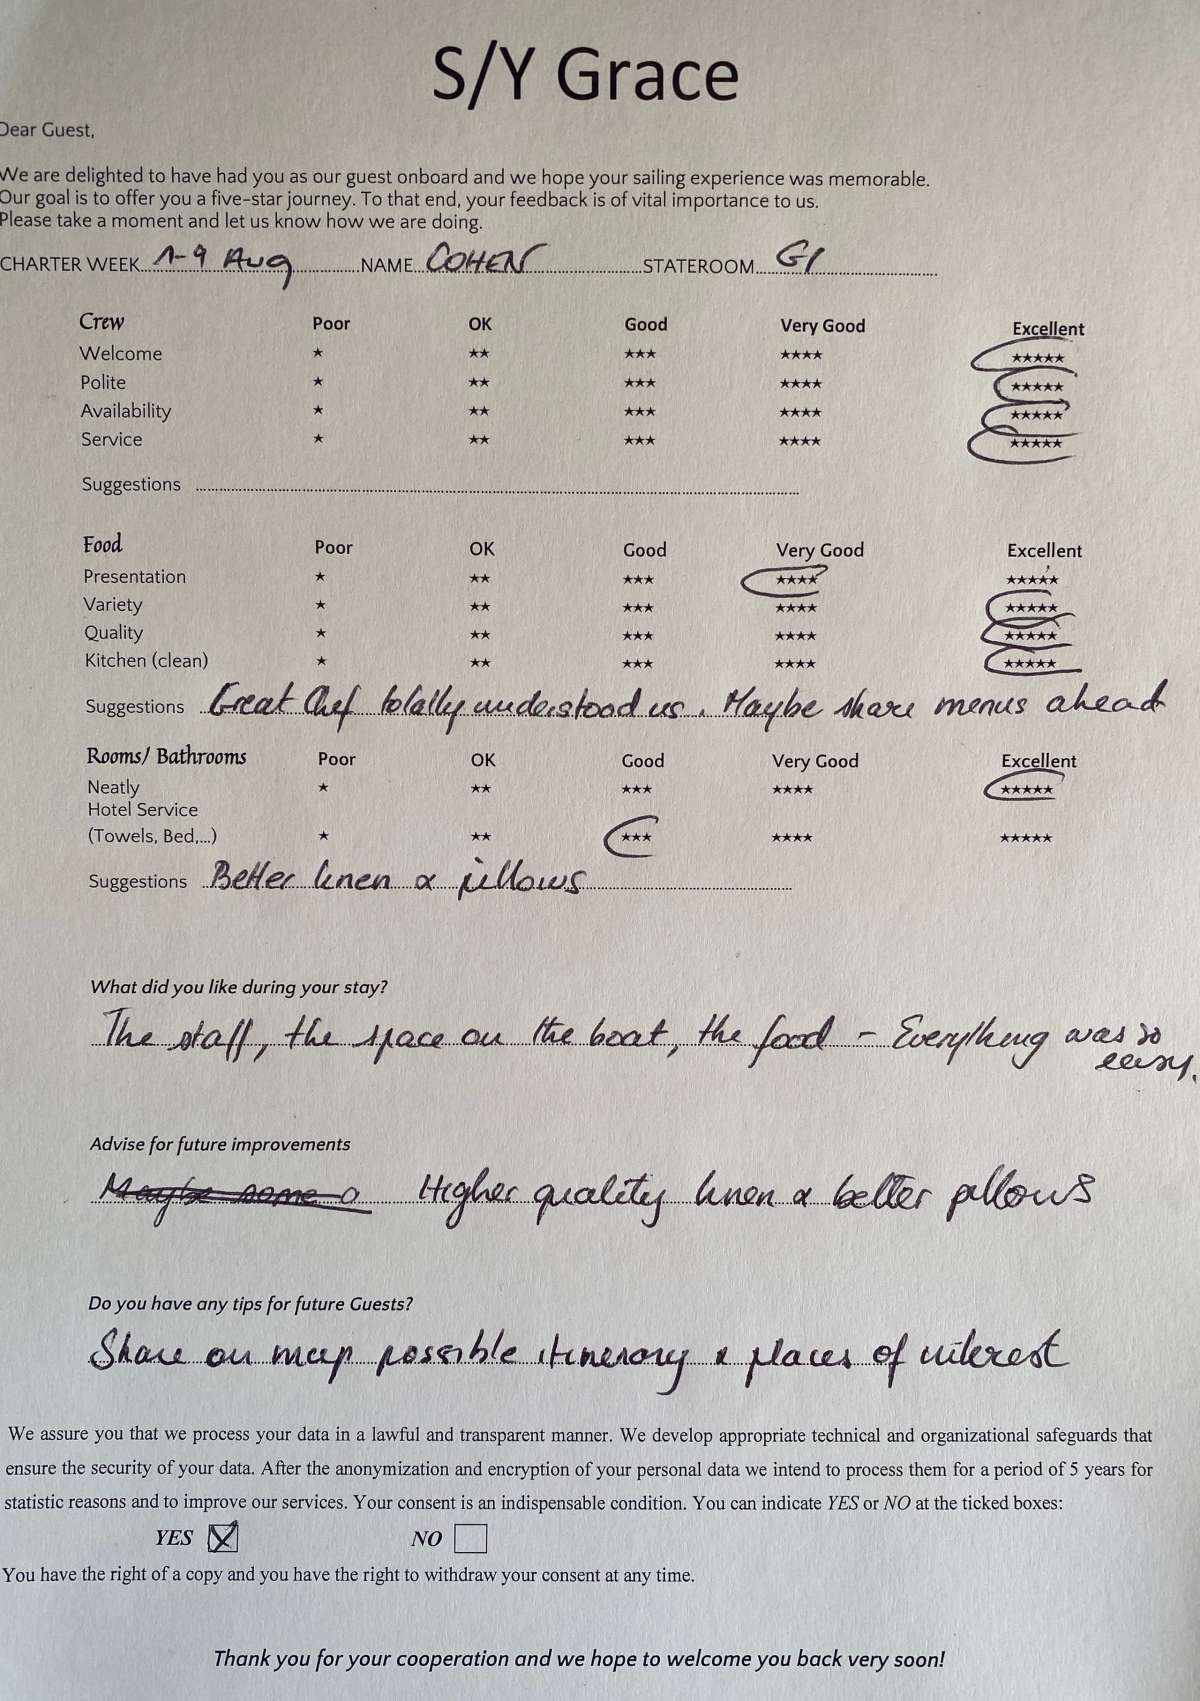 S/Y Grace
Dear Guest,
We are delighted to have had you as our guest onboard and we hope your sailing experience was memorable.
Our goal is to offer you a five-star journey. To that end, your feedback is of vital importance to us.
Please take a moment and let us know how we are doing.
CHARTER WEEK 1-9 Aug NAME COHEN STATEROOM G1
Crew Poor OK Good Very Good Excellent
Welcome ★ ★★ ★★★ ★★★★ ★★★★★
Polite ★ ★★ ★★★ ★★★★ ★★★★★
Availability ★ ★★ ★★★ ★★★★ ★★★★★
Service ★ ★★ ★★★ ★★★★ ★★★★★
Suggestions
Food Poor OK Good Very Good Excellent
Presentation ★ ★★ ★★★ ★★★★ ★★★★★
Variety ★ ★★ ★★★ ★★★★ ★★★★★
Quality ★ ★★ ★★★ ★★★★ ★★★★★
Kitchen (clean) ★ ★★ ★★★ ★★★★ ★★★★★
Suggestions Great Chef totally understood us. Maybe share menus ahead
Rooms/ Bathrooms Poor OK Good Very Good Excellent
Neatly ★ ★★ ★★★ ★★★★ ★★★★★
Hotel Service
(Towels, Bed,...) ★ ★★ ★★★ ★★★★ ★★★★★
Suggestions Better linen & pillows
What did you like during your stay?
The staff, the space on the boat, the food - Everything was so
easy.
Advise for future improvements
Maybe some o Higher quality linen & better pillows
Do you have any tips for future Guests?
Share on map possible itinerary & places of interest
We assure you that we process your data in a lawful and transparent manner. We develop appropriate technical and organizational safeguards that
ensure the security of your data. After the anonymization and encryption of your personal data we intend to process them for a period of 5 years for
statistic reasons and to improve our services. Your consent is an indispensable condition. You can indicate YES or NO at the ticked boxes:
YES NO
You have the right of a copy and you have the right to withdraw your consent at any time.
Thank you for your cooperation and we hope to welcome you back very soon!